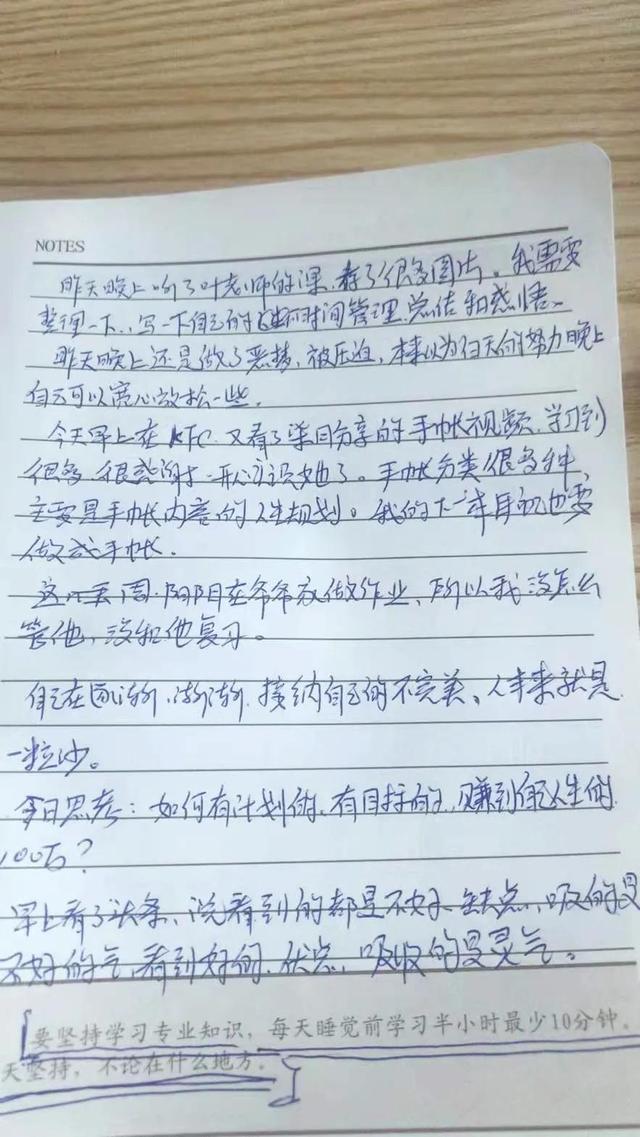 NOTES
昨天晚上听了叶老师的课,存了很多图片。我需要
整理一下,写一下自己的时间管理总结和感悟。
昨天晚上还是做了恶梦,被压迫,本以为白天的努力晚上
自己可以宽心放松一些。
今天早上在KFC又看了分享的手帐视频,学习到
很多,很感谢,开心认识她了。手帐分类很多种,
主要是手帐内容的人生规划。我的下一年目标也要
做成手帐。
这一周阳阳在爷爷家做作业,所以我没怎么
管他,没和他复习。
自己在渐渐接纳自己的不完美,人本来就是
一粒沙。
今日思考:如何有计划的、有目标的,赚到自己人生的
100万?
早上看了头条,说看到的都是不好、缺点,吸的是
不好的气,看到好的、优点,吸收的是灵气。
要坚持学习专业知识,每天睡觉前学习半小时最少10分钟。
天坚持,不论在什么地方。